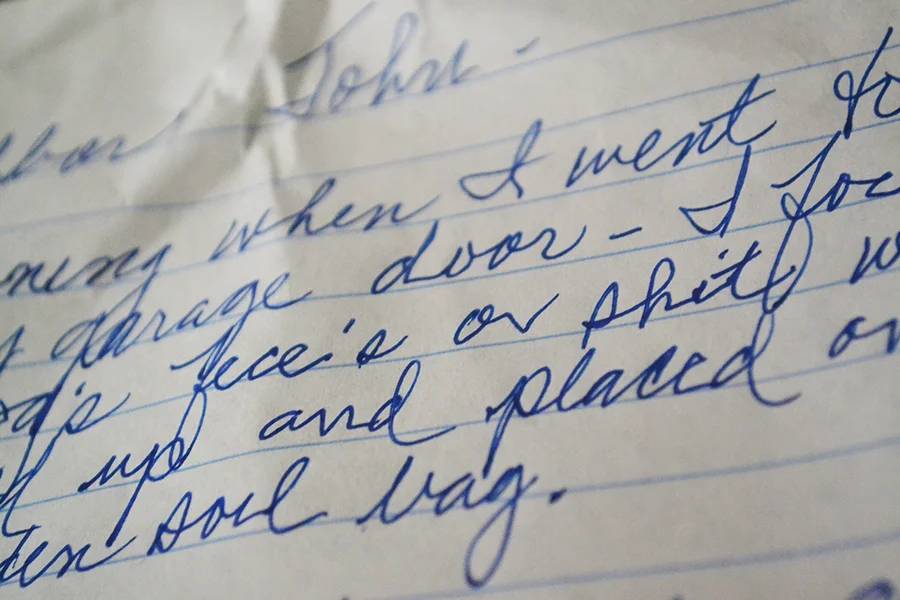 John -
ning when I went to
garage door - I
fece's or shit)
up and placed
soil bag.